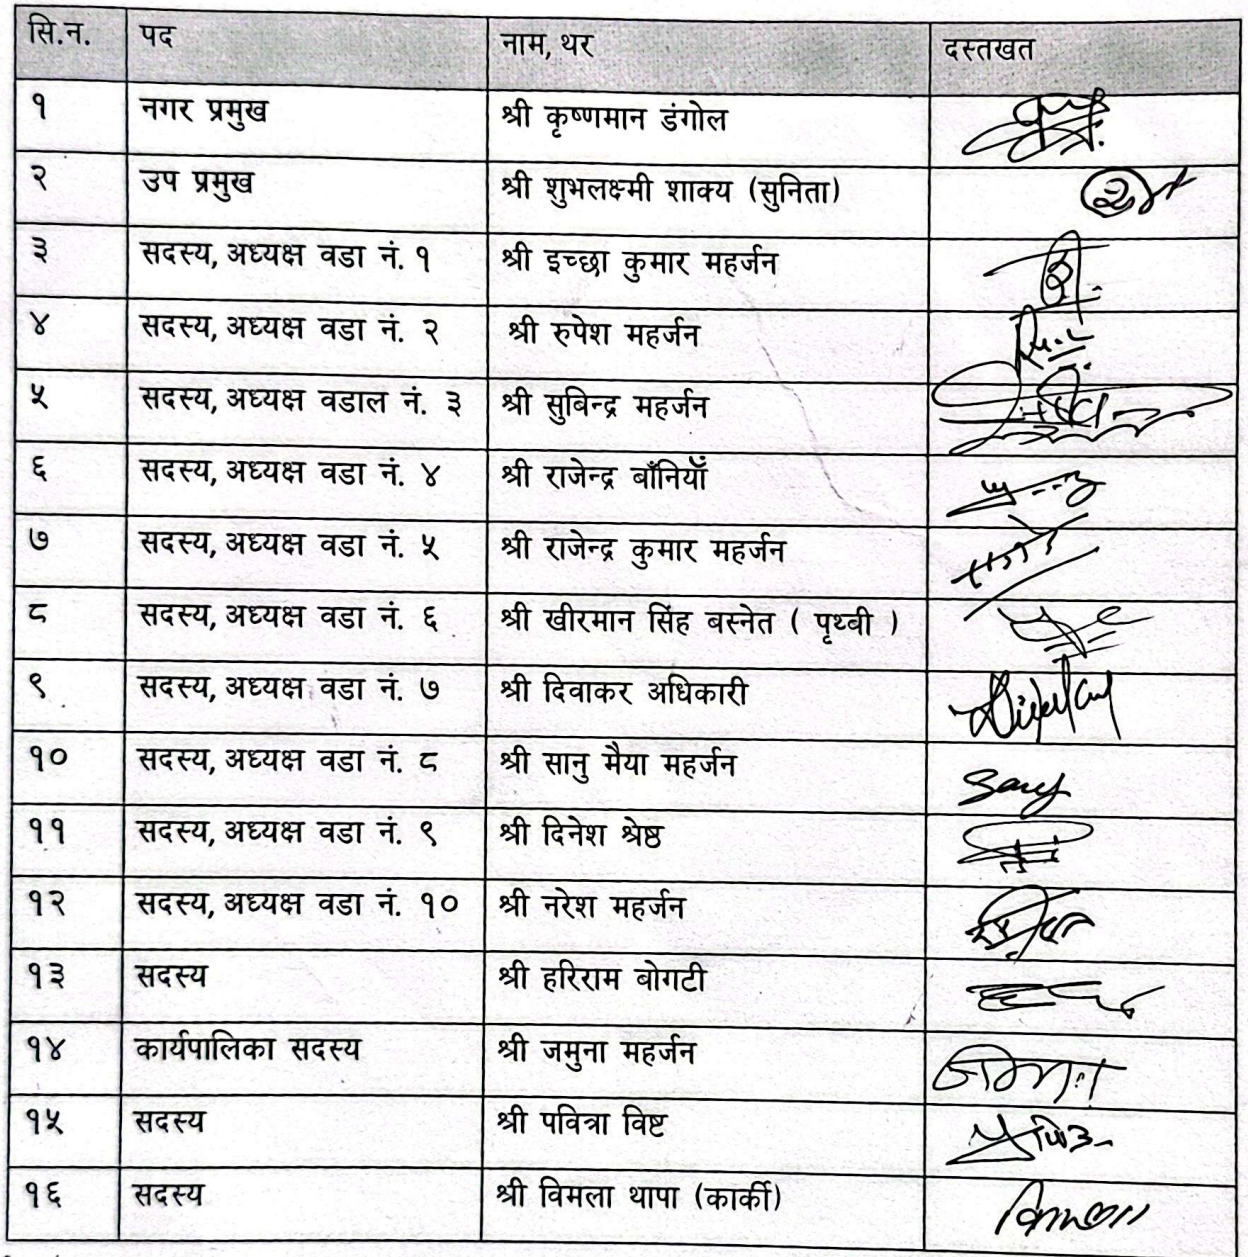 सि.न. पद नाम, थर दस्तखत
१ नगर प्रमुख श्री कृष्णमान डंगोल
२ उप प्रमुख श्री शुभलक्ष्मी शाक्य (सुनिता)
३ सदस्य, अध्यक्ष वडा नं. १ श्री इच्छा कुमार महर्जन
४ सदस्य, अध्यक्ष वडा नं. २ श्री रुपेश महर्जन
५ सदस्य, अध्यक्ष वडाल नं. ३ श्री सुबिन्द्र महर्जन
६ सदस्य, अध्यक्ष वडा नं. ४ श्री राजेन्द्र बाँनियाँ
७ सदस्य, अध्यक्ष वडा नं. ५ श्री राजेन्द्र कुमार महर्जन
८ सदस्य, अध्यक्ष वडा नं. ६ श्री खीरमान सिंह बस्नेत ( पृथ्बी )
९ सदस्य, अध्यक्ष वडा नं. ७ श्री दिवाकर अधिकारी
१० सदस्य, अध्यक्ष वडा नं. ८ श्री सानु मैया महर्जन
११ सदस्य, अध्यक्ष वडा नं. ९ श्री दिनेश श्रेष्ठ
१२ सदस्य, अध्यक्ष वडा नं. १० श्री नरेश महर्जन
१३ सदस्य श्री हरिराम बोगटी
१४ कार्यपालिका सदस्य श्री जमुना महर्जन
१५ सदस्य श्री पवित्रा विष्ट
१६ सदस्य श्री विमला थापा (कार्की)